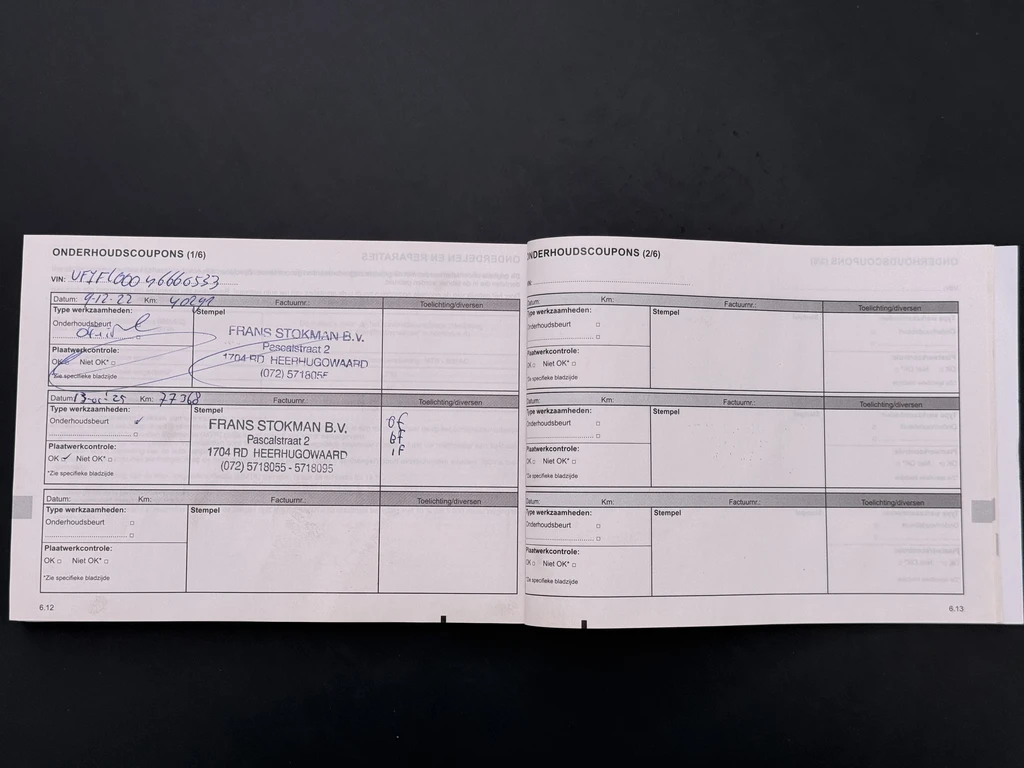 ONDERHOUDSCOUPONS (1/6)
VIN:
Datum: 9-12-22 Km: 40291 Factuurnr.: Toelichting/diversen
Type werkzaamheden: Stempel
Onderhoudsbeurt
FRANS STOKMAN B.V.
Pascalstraat 2
1704 RD HEERHUGOWAARD
(072) 5718055
Plaatwerkcontrole:
OK Niet OK*
*Zie specifieke bladzijde
Datum: Km: 77368 Factuurnr.: Toelichting/diversen
Type werkzaamheden: Stempel
Onderhoudsbeurt
FRANS STOKMAN B.V.
Pascalstraat 2
1704 RD HEERHUGOWAARD
(072) 5718055 - 5718095
of
bf
if
Plaatwerkcontrole:
OK Niet OK*
*Zie specifieke bladzijde
Datum: Km: Factuurnr.: Toelichting/diversen
Type werkzaamheden: Stempel
Onderhoudsbeurt
Plaatwerkcontrole:
OK Niet OK*
*Zie specifieke bladzijde
6.12
ONDERHOUDSCOUPONS (2/6)
VIN:
Datum: Km: Factuurnr.: Toelichting/diversen
Type werkzaamheden: Stempel
Onderhoudsbeurt
Plaatwerkcontrole:
OK Niet OK*
*Zie specifieke bladzijde
Datum: Km: Factuurnr.: Toelichting/diversen
Type werkzaamheden: Stempel
Onderhoudsbeurt
Plaatwerkcontrole:
OK Niet OK*
*Zie specifieke bladzijde
Datum: Km: Factuurnr.: Toelichting/diversen
Type werkzaamheden: Stempel
Onderhoudsbeurt
Plaatwerkcontrole:
OK Niet OK*
*Zie specifieke bladzijde
6.13